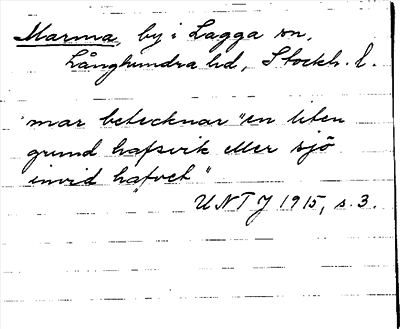 Marma, by i Lagga sn,
Långhundra hd, Stockh. l.
mar betecknar "en liten
grund hafsvik eller sjö
invid hafvet"
UNTJ 1915, s. 3.